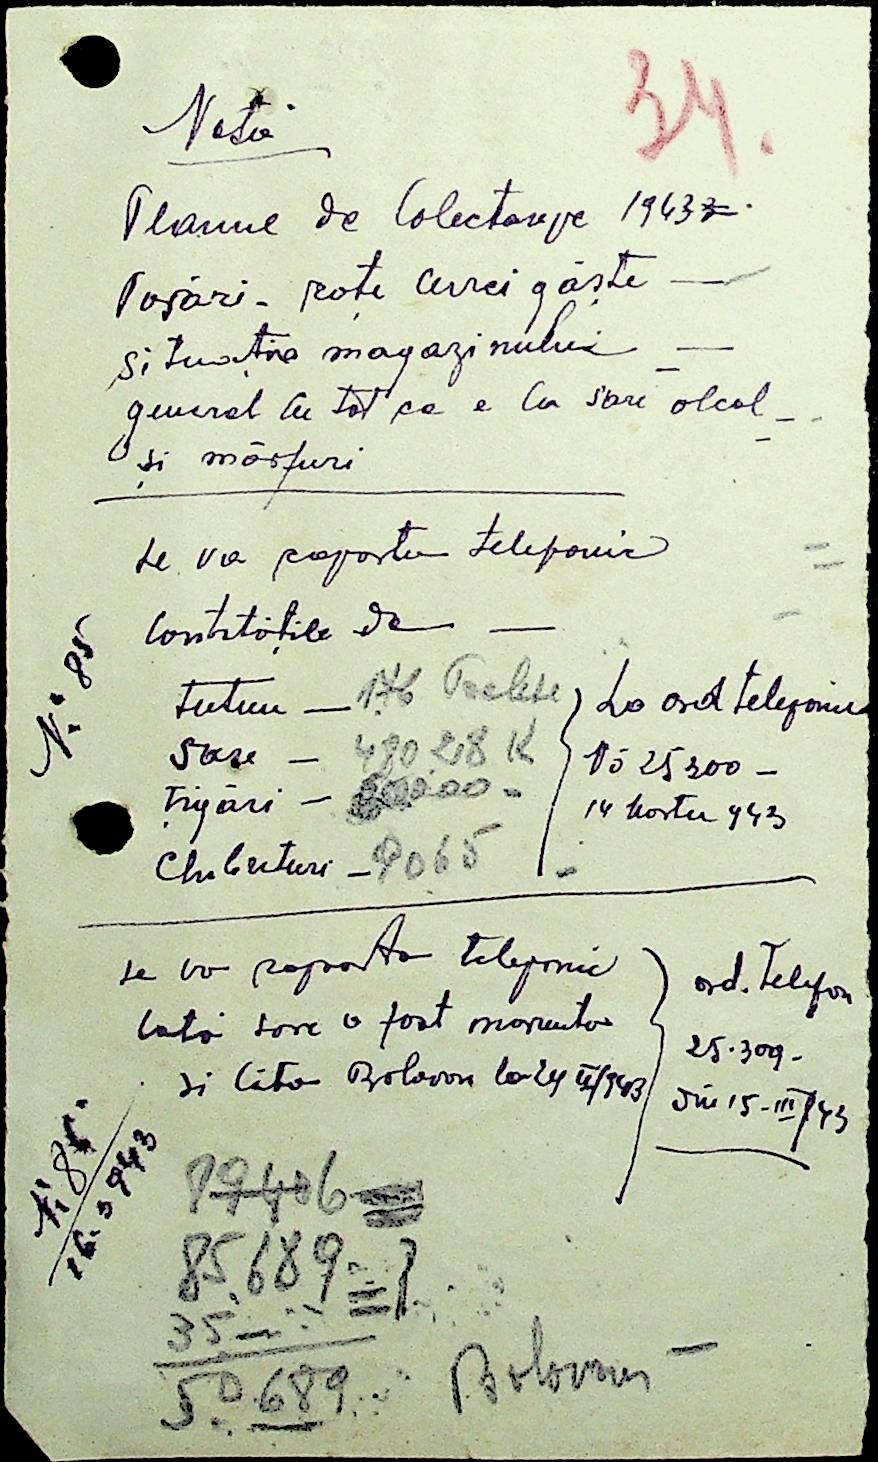 34.
Notă
Planul de Colectare 1943
Păsări - rațe curci gâște —
situația magazinului —
general cu tot ce e cu sare alcol
și mărfuri
se va raporta telefonic
Cantitățile de —
tutun — 176 Pachete
Sare — 480 218 K
Țigări —
Chibrituri - 9065
La ord telefonic
No 25300 —
14 Martie 943
No. 85
se va raporta telefonic
câtă sare a fost
și câtă Bolovani la 24 II/943
ord. Telefon
25.309 -
din 15-III/943
No. 85
16.3 943
19406
85.689
35
50.689
Bolovani —